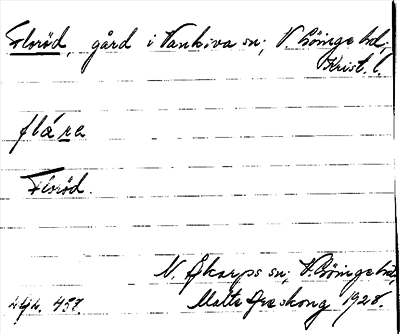 Floröd, gård i Vankiva sn; V. Göinge hd;
Krist. l.
flára
Floröd.
N. Åkarps sn; V. Göinge hd,
Malte Areskoug 1928.
457.